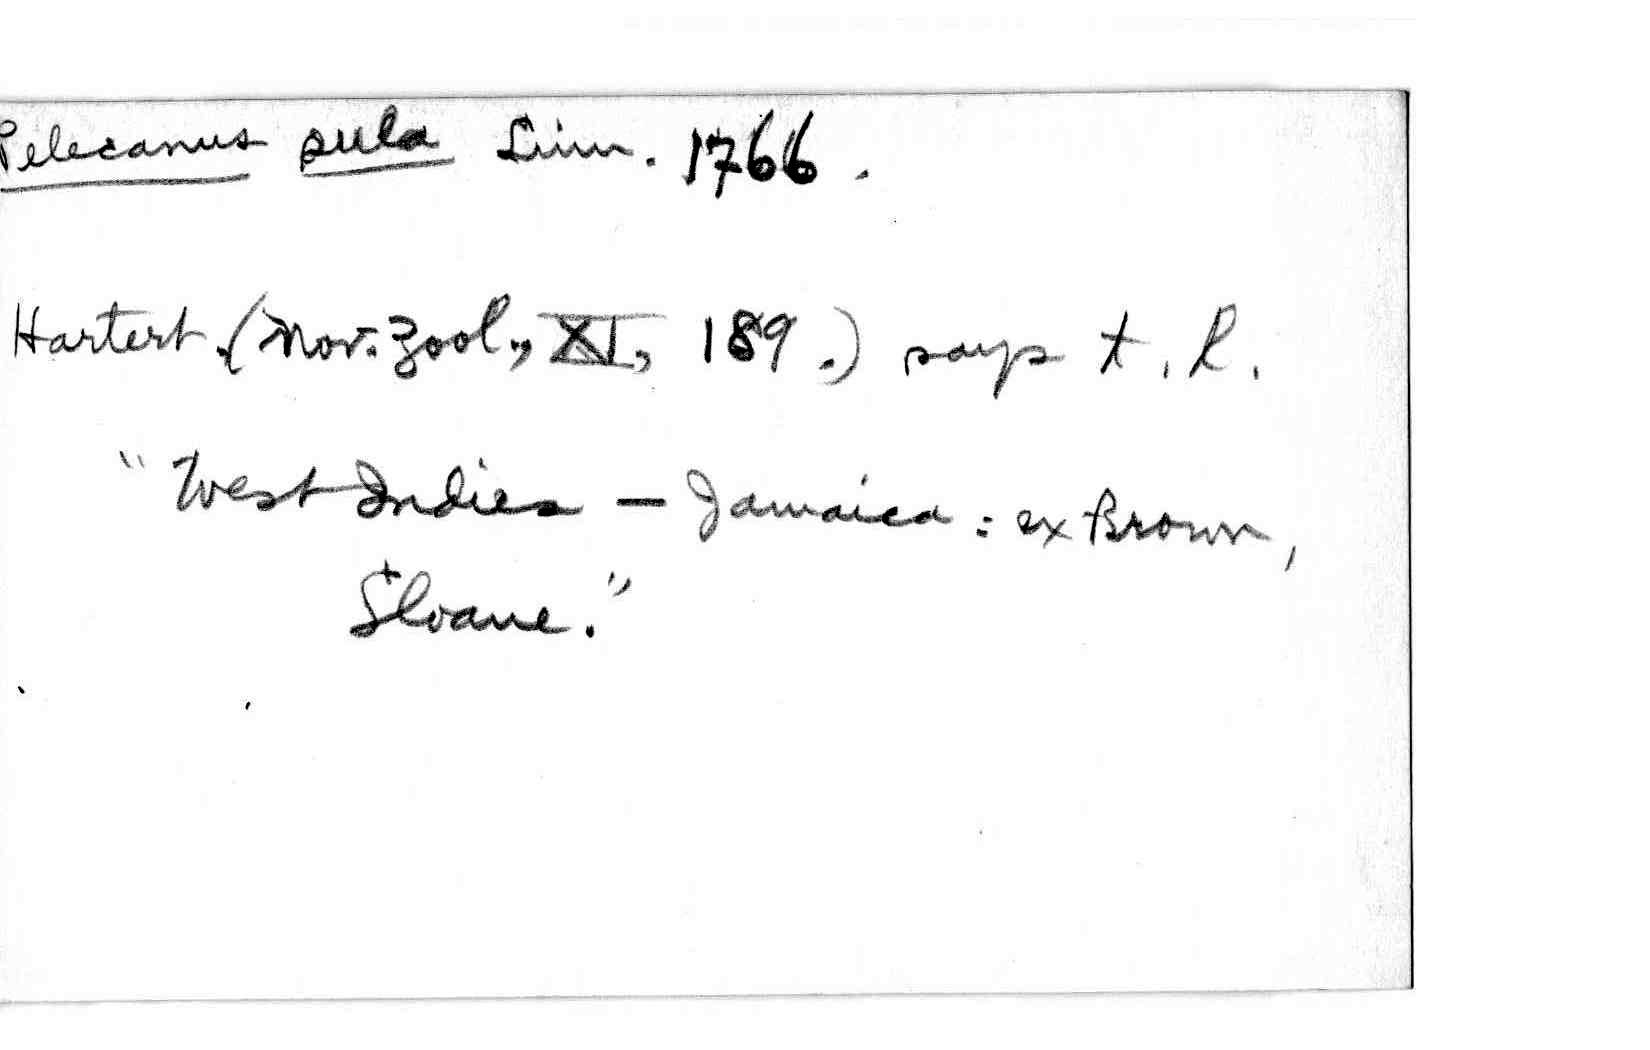 Pelecanus sula Linn. 1766.
Hartert (Nov. Zool., XI, 189.) says t. l.
"West Indies – Jamaica: ex Brown,
Sloane."